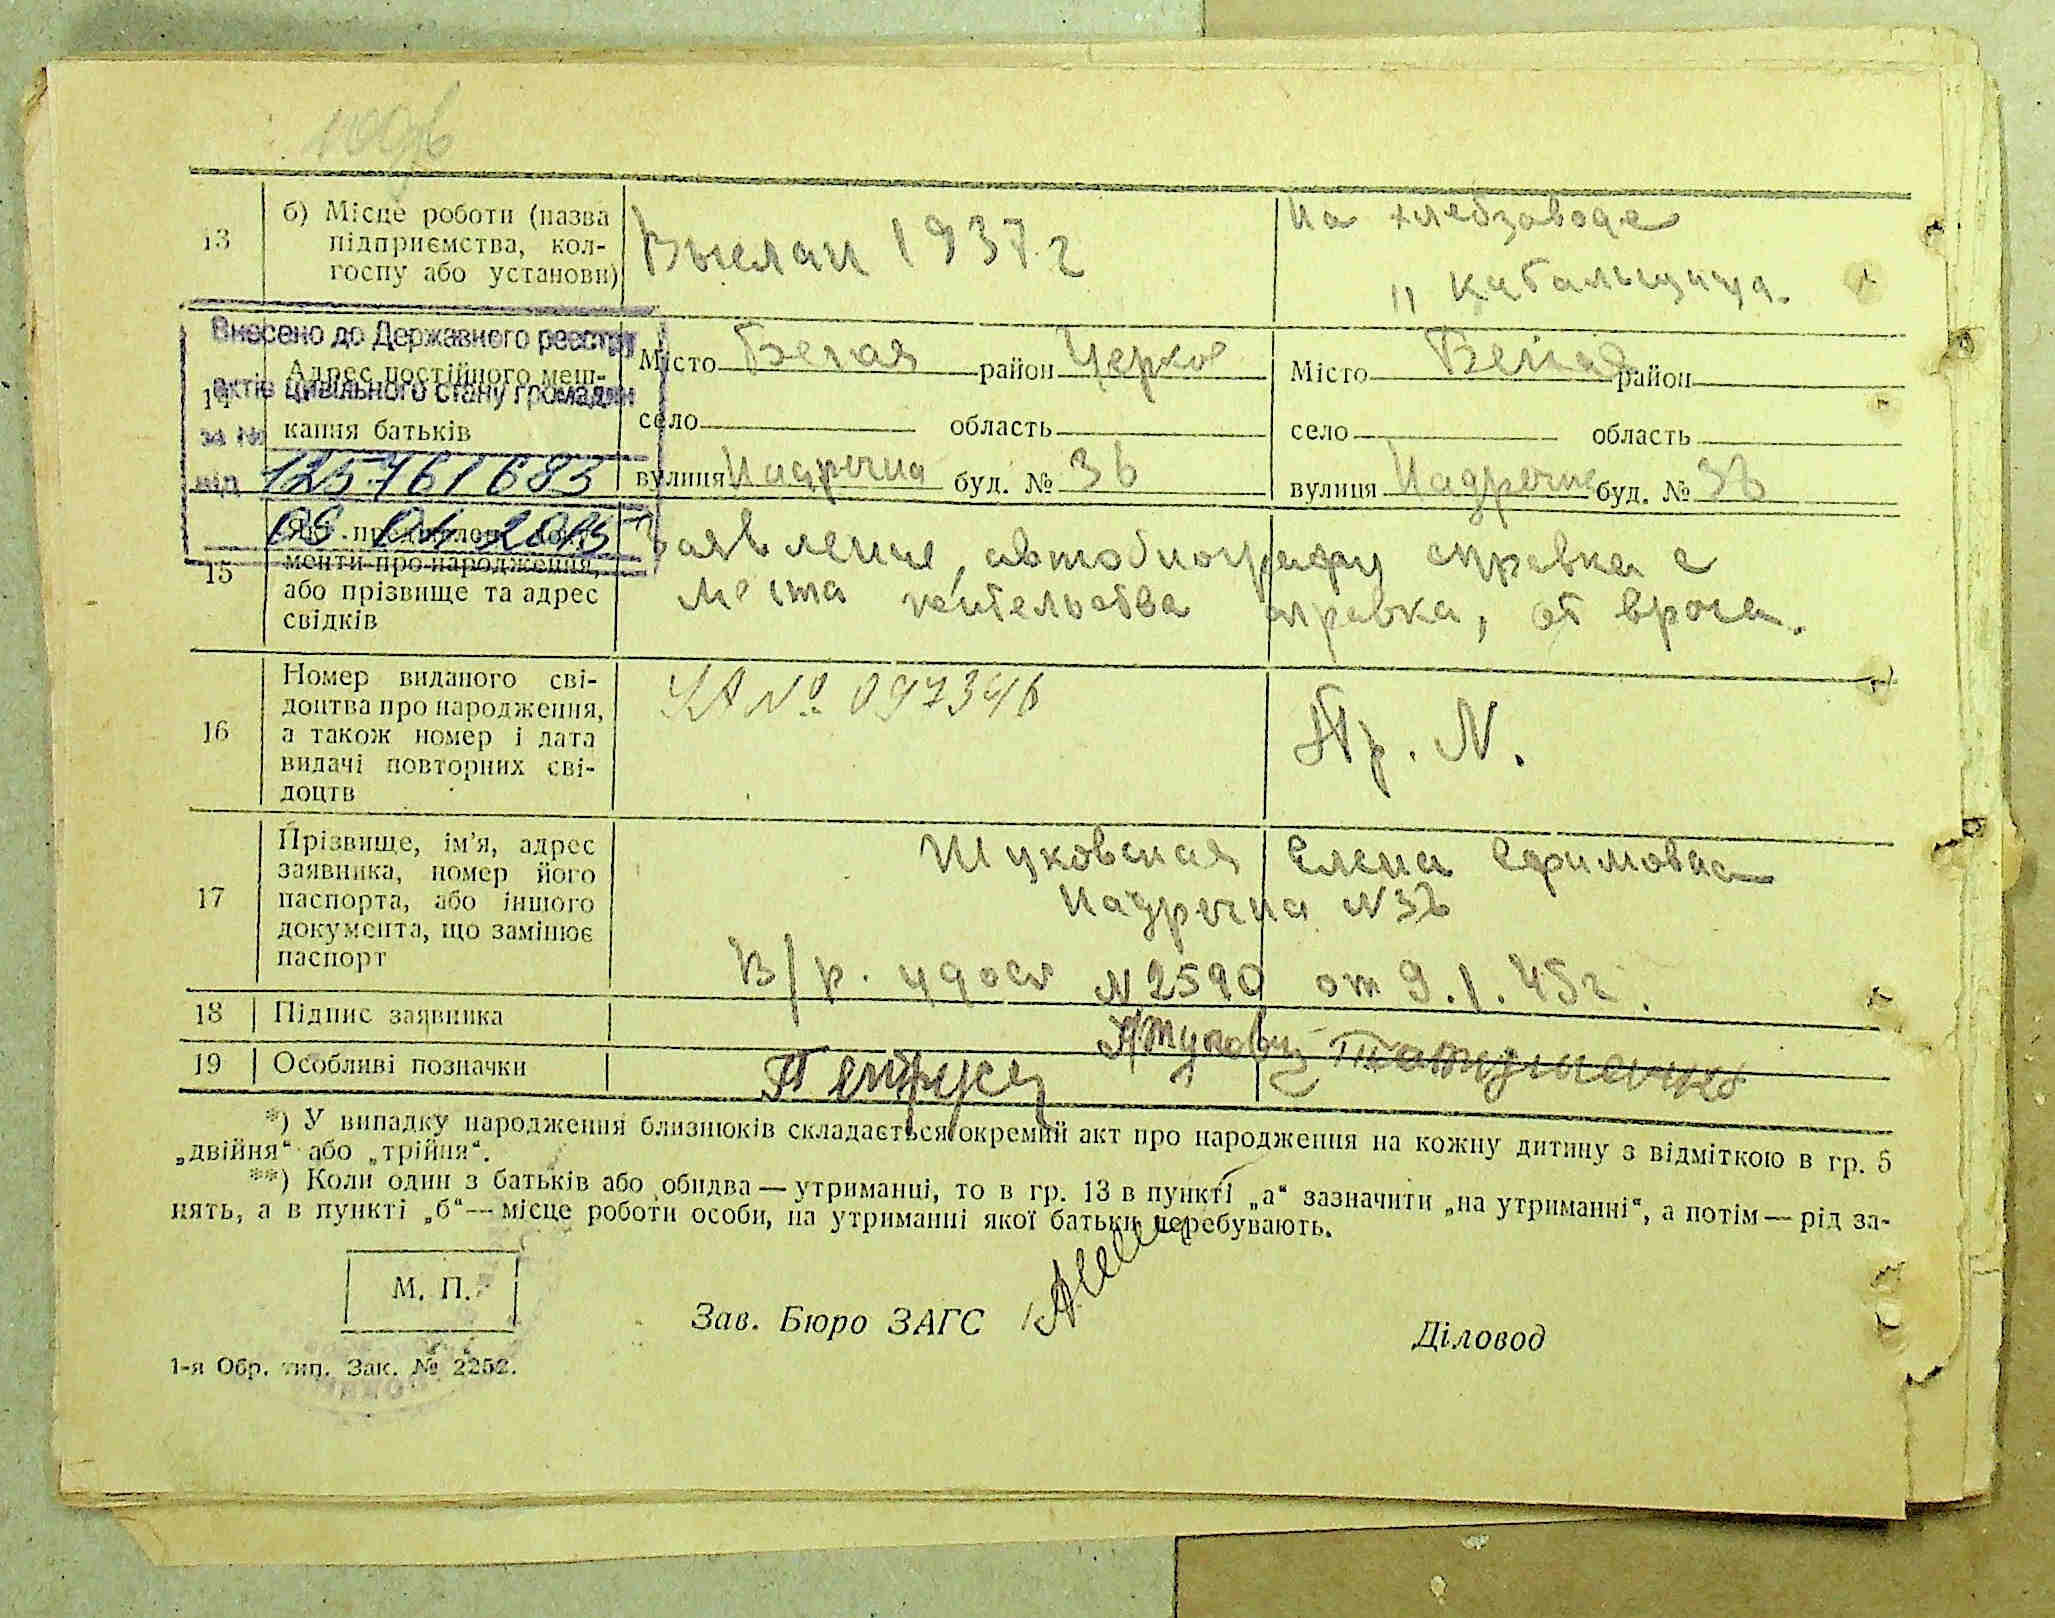 13
б) Місце роботи (назва
підприємства, кол-
госпу або установи)
Выслан 1937 г
На хлебзаводе
Внесено до Державного реєстру
актів цивільного стану громадян
за №
від
125761683
08 04 2015
14
Адрес постійного меш-
кання батьків
Місто Белая район Церков
село область
вулиця Надречна буд. № 36
Місто Белая район
село область
вулиця Надречна буд. № 36
15
менти про народження,
або прізвище та адрес
свідків
Заявление, автобиографи справка с
места жительства справка, от врача.
16
Номер виданого сві-
доцтва про народження,
а також номер і дата
видачі повторних сві-
доцтв
УА № 097346
Пр. N.
17
Прізвище, ім'я, адрес
заявника, номер його
паспорта, або іншого
документа, що замінює
паспорт
Жуковская Елена Ефимовна
Надречна N 36
В/р. удост N 2590 от 9.1.45 г.
18
Підпис заявника
19
Особливі позначки
*) У випадку народження близнюків складається окремий акт про народження на кожну дитину з відміткою в гр. 5
„двійня“ або „трійня“.
**) Коли один з батьків або обидва — утриманці, то в гр. 13 в пункті „а“ зазначити „на утриманні“, а потім — рід за-
нять, а в пункті „б“ — місце роботи особи, на утриманні якої батьки перебувають.
М. П.
Зав. Бюро ЗАГС
Діловод
1-я Обр. тип. Зак. № 2252.